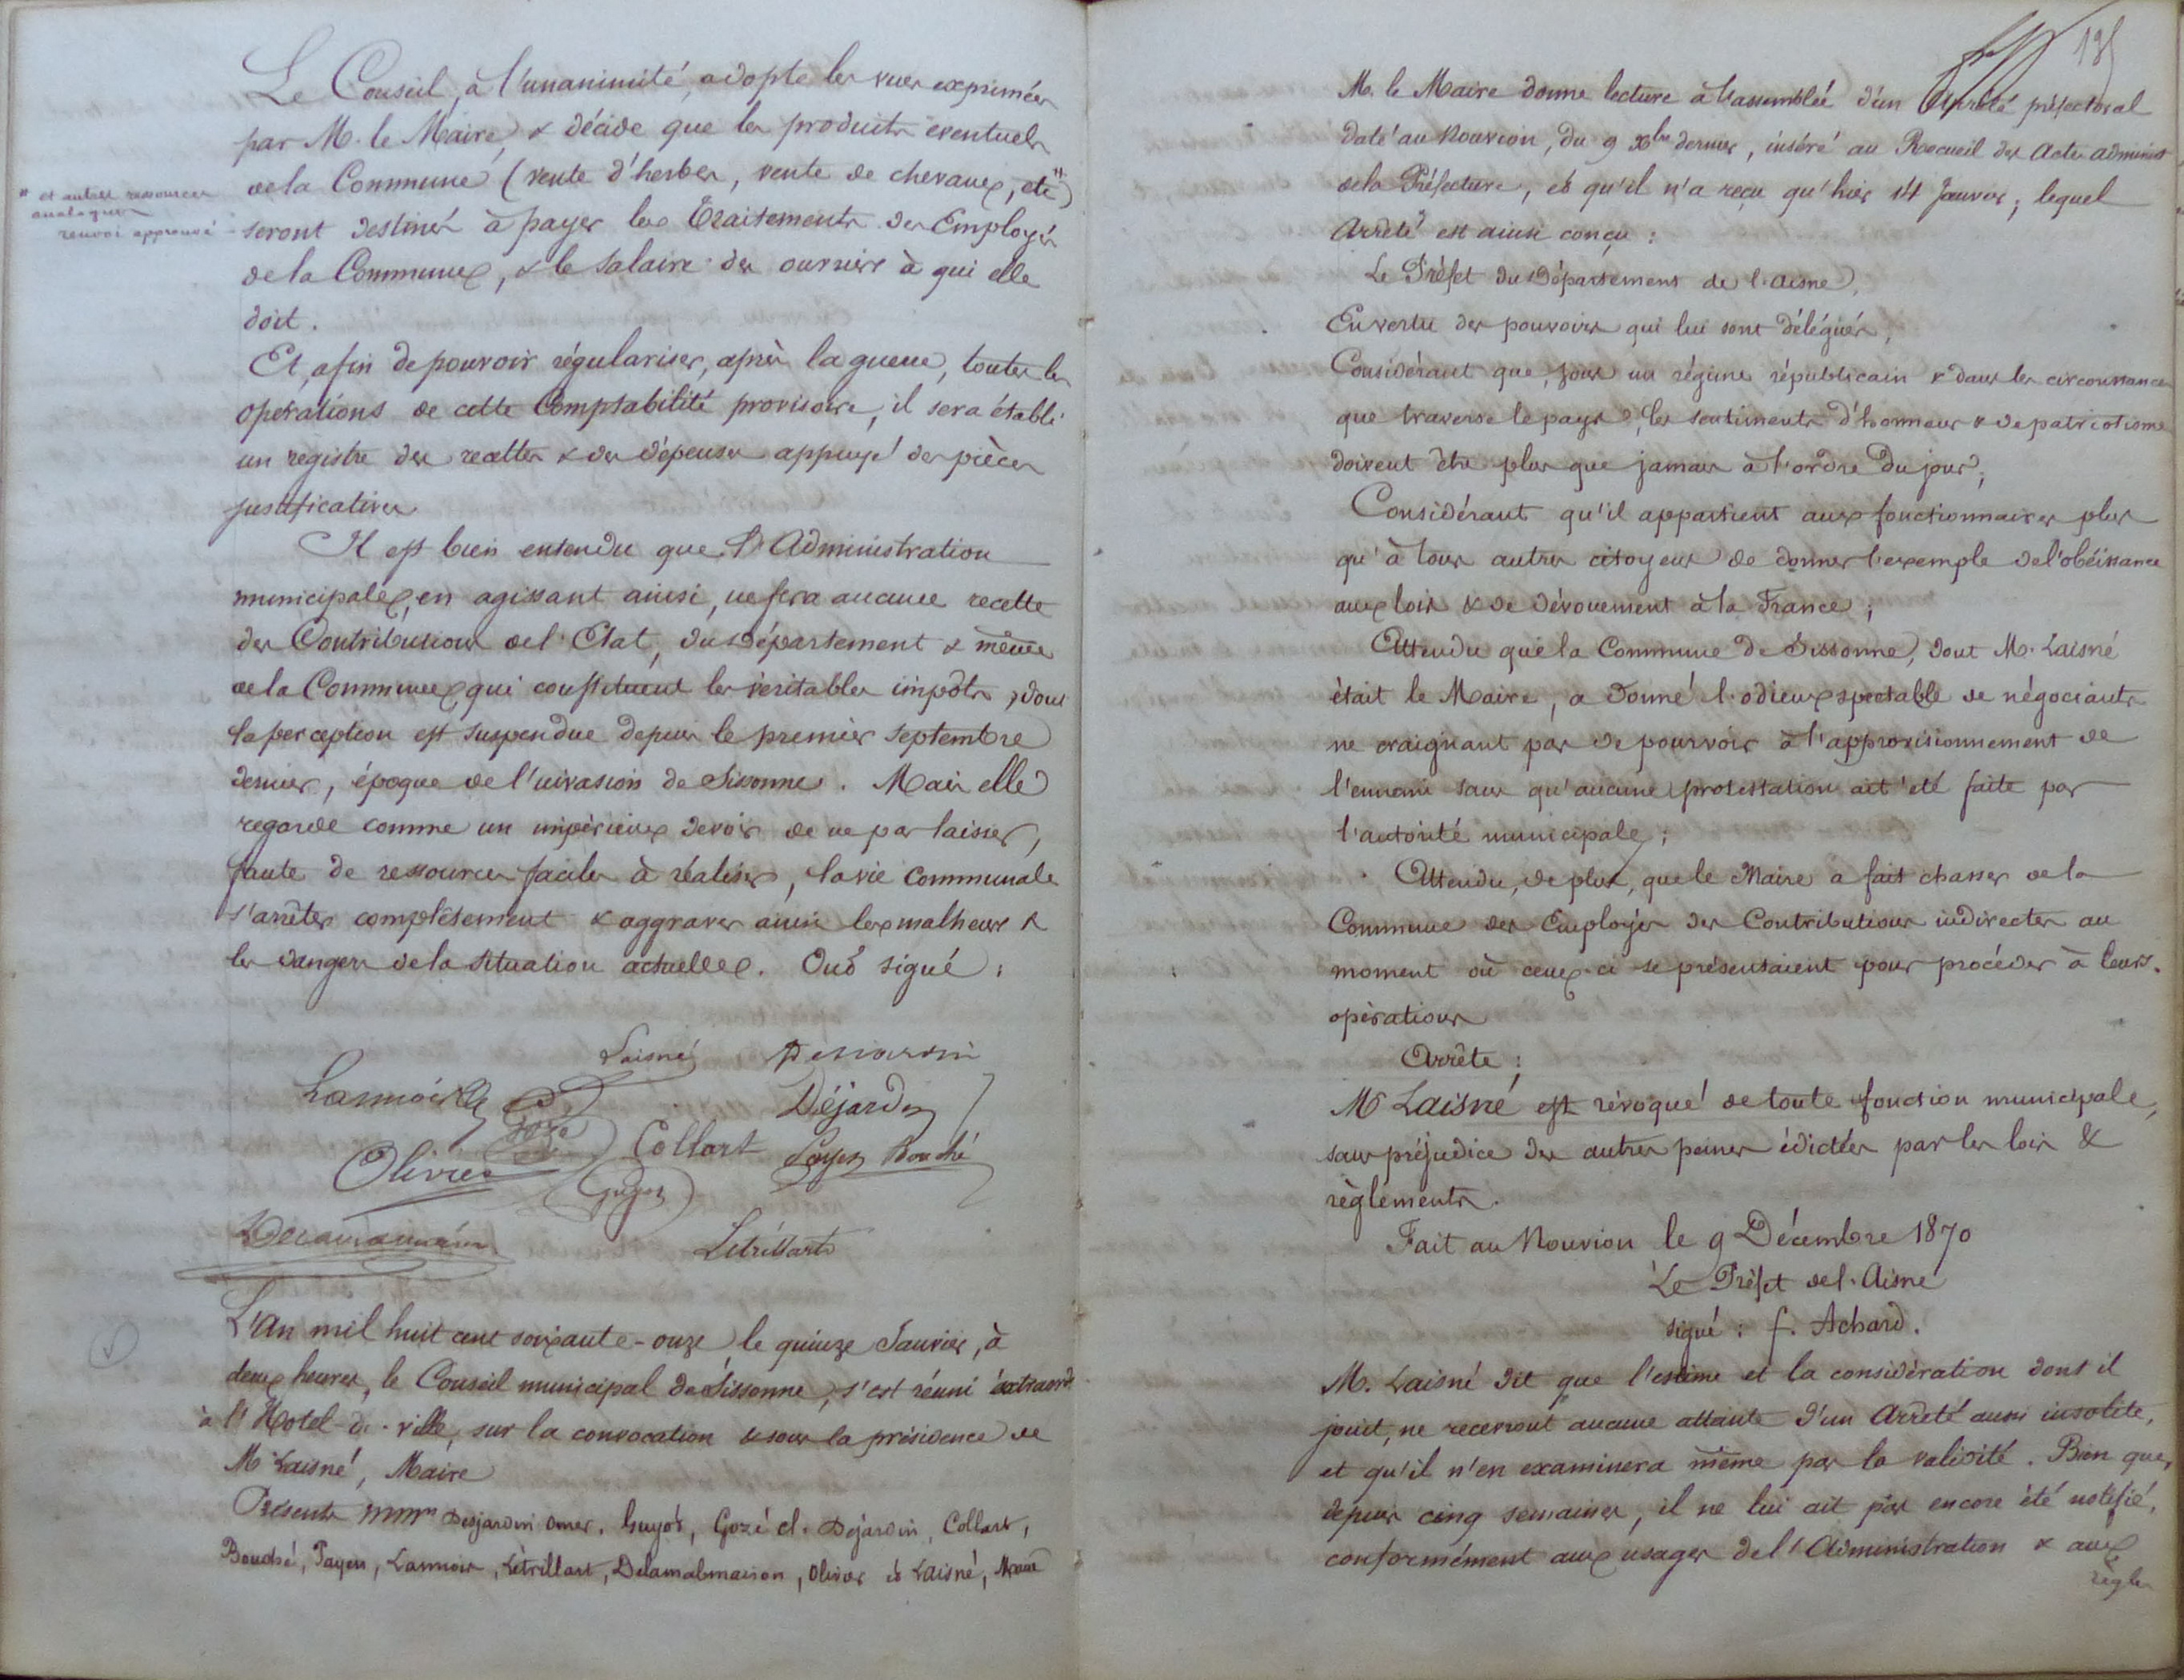 Le Conseil, à l'unanimité, adopte les vues exprimées
par M. le Maire, & décide que les produits éventuels
de la Commune (vente d'herbes, vente de chevaux, etc #)
# et autres ressources
analogues
renvoi approuvé
seront destinés à payer les Traitements des Employés
de la Commune, & le salaire des ouvriers à qui elle
doit.
Et, afin de pouvoir régulariser, après la guerre, toutes les
opérations de cette Comptabilité provisoire, il sera établi
un registre des recettes & des dépenses appuyé des pièces
justificatives
Il est bien entendu que l'Administration
municipale, en agissant ainsi, ne fera aucune recette
des Contributions de l'Etat, du Département & même
de la Commune qui constituent les véritables impôts, dont
la perception est suspendue depuis le premier septembre
dernier, époque de l'invasion de Sissonne. Mais elle
regarde comme un impérieux devoir de ne pas laisser,
faute de ressources faciles à réaliser, la vie Communale
s'arrêter complètement & aggraver ainsi les malheurs &
les dangers de la situation actuelle. Ont signé :
Laisné Desjardin
Lannois Gozé Déjardin
Olivier Collart Payen Bouché
Guyot
Delamalmaison Létrillart
L'An mil huit cent soixante-onze le quinze Janvier, à
deux heures, le Conseil municipal de Sissonne, s'est réuni extraord.t
à l'Hotel-de-ville, sur la convocation & sous la présidence de
M Laisné, Maire
Présents MMrs Desjardin Omer, Guyot, Gozé cl. Dejardin, Collart,
Bouché, Payen, Lannois, Létrillart, Delamalmaison, Olivier et Laisné, Maire
135
M. le Maire donne lecture à l'assemblée d'un Arrêté préfectoral
daté au Nouvion, du 9 Xbre dernier, inséré au Recueil des Actes administ
de la Préfecture, et qu'il n'a reçu qu'hier 14 Janvier, lequel
Arrêté est ainsi conçu :
Le Préfet du Département de l'Aisne,
En vertu des pouvoirs qui lui sont délégués,
Considérant que, sous un régime républicain & dans les circonstances
que traverse le pays, les sentiments d'honneur & de patriotisme
doivent être plus que jamais à l'ordre du jour,
Considérant qu'il appartient aux fonctionnaires plus
qu'à tous autres citoyens de donner l'exemple de l'obéissance
aux lois & de dévouement à la France ;
Attendu que la Commune de Sissonne, dont M. Laisné
était le Maire, a donné l'odieux spectable de négociants
ne craignant pas de pourvoir à l'approvisionnement de
l'ennemi sans qu'aucune protestation ait été faite par
l'autorité municipale ;
Attendu, de plus, que le Maire a fait chasser de la
Commune des Employés des Contributions indirectes au
moment où ceux-ci se présentaient pour procéder à leurs
opérations
Arrête :
M Laisné est révoqué de toute fonction municipale,
sans préjudice des autres peines édictées par les lois &
règlements.
Fait au Nouvion le 9 Décembre 1870
Le Préfet de l'Aisne
signé : f. Achard.
M. Laisné dit que l'estime et la considération dont il
jouit, ne recevront aucune atteinte d'un Arrêté aussi insolite,
et qu'il n'en examinera même pas la validité. Bien que,
depuis cinq semaines, il ne lui ait pas encore été notifié,
conformément aux usages de l'Administration & aux
règles